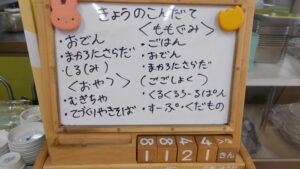 きょうのこんだて
・おでん
・まかろにさらだ
・しる(み)
<おやつ>
・むぎちゃ
・てづくりやきそば
<ももぐみ>
・ごはん
・おでん
・まかろにさらだ
(ごごしょく)
・くるくるろーるぱん
・すーぷ・くだもの
8 8 4 4
1 1 2 1 さん